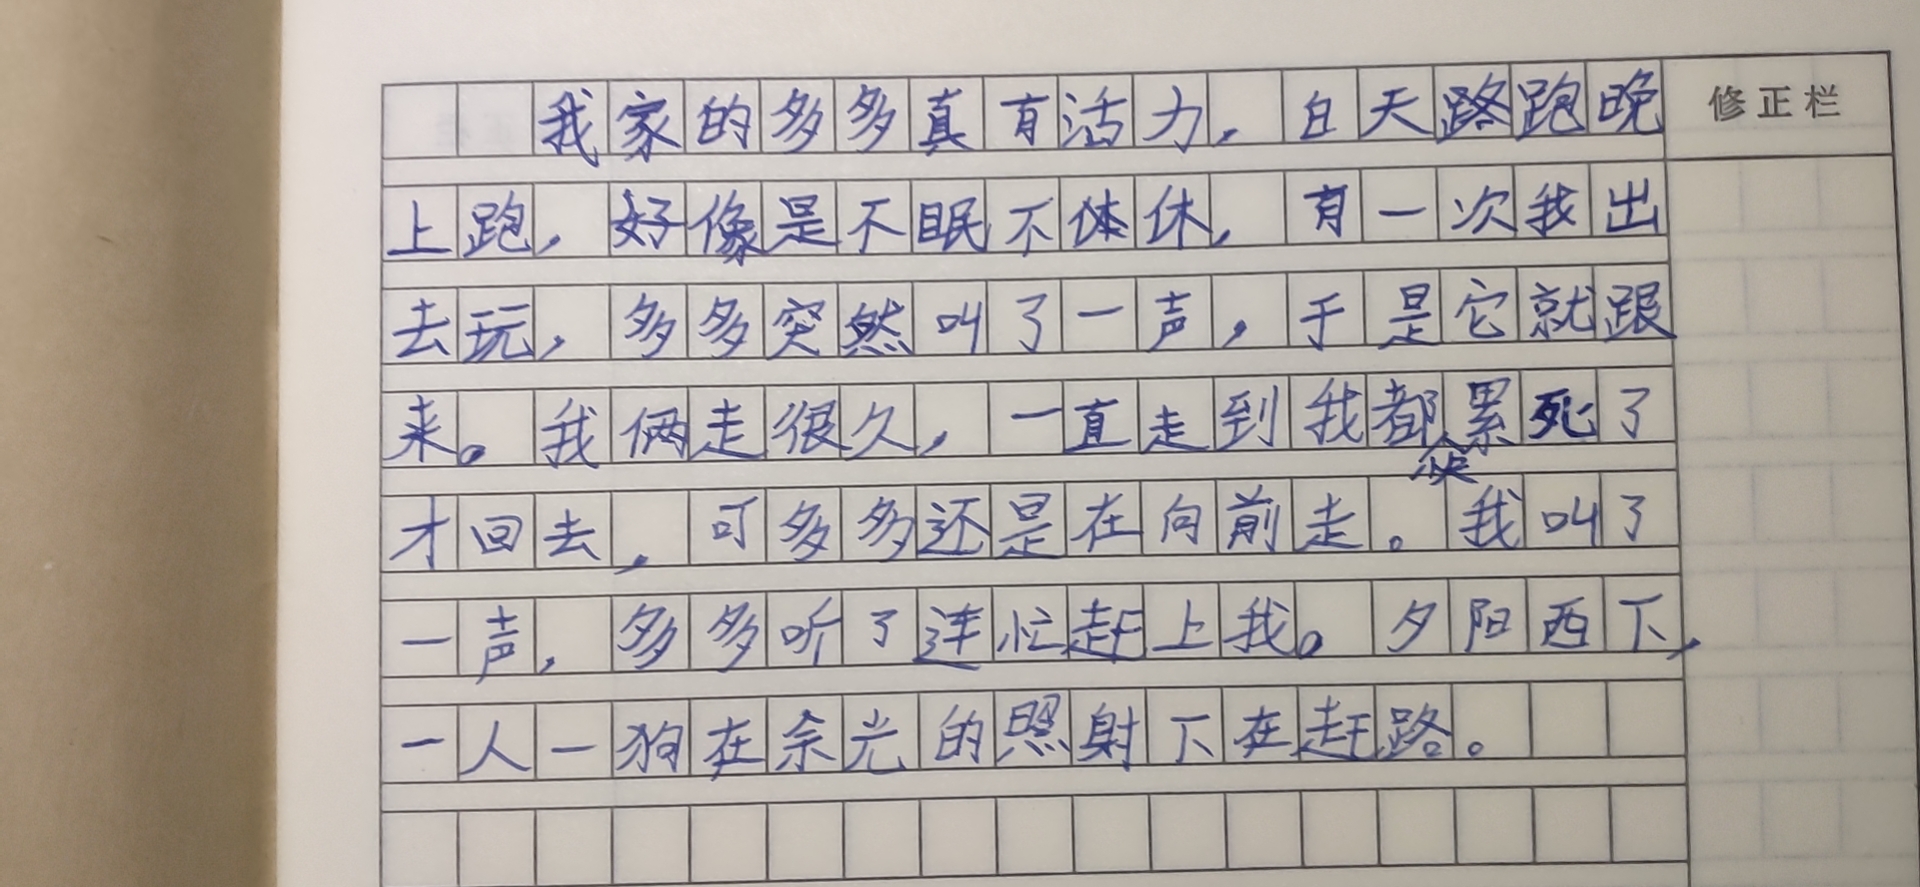 我家的多多真有活力，白天路跑晚
修正栏
上跑，好像是不眠不体休，有一次我出
去玩，多多突然叫了一声，于是它就跟
来。我俩走很久，一直走到我都快累死了
才回去，可多多还是在向前走。我叫了
一声，多多听了连忙赶上我。夕阳西下，
一人一狗在余光的照射下在赶路。